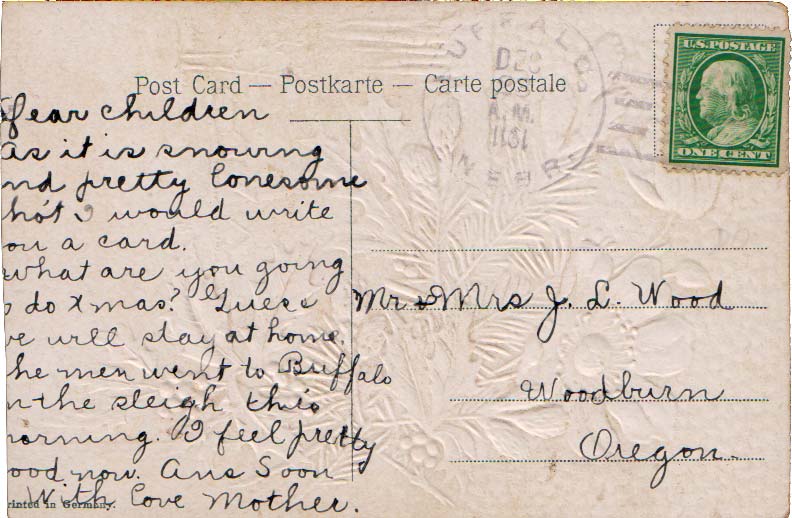 Post Card — Postkarte — Carte postale
BUFFALO,
DEC
A.M.
1131
NEBR.
U.S. POSTAGE
ONE CENT
Dear children
as it is snowing
nd pretty lonesome
ho't I would write
ou a card.
what are you going
o do Xmas? Guess
we will stay at home.
he men went to Buffalo
n the sleigh this
orning. I feel pretty
ood now. Ans Soon
With love Mother.
Mr & Mrs J. L. Wood
Woodburn
Oregon.
rinted in Germany.